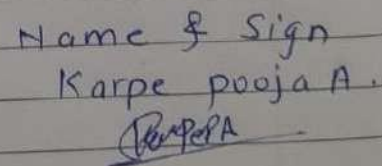 Name & Sign
Karpe pooja A.